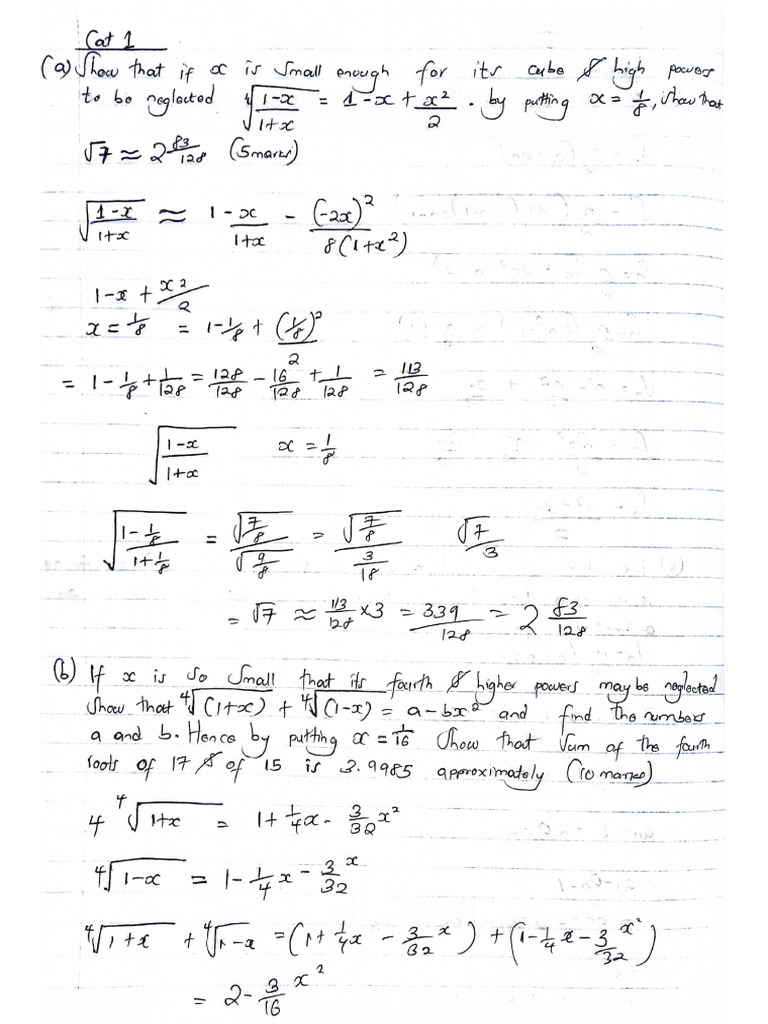 Cat 1
(a) Show that if x is small enough for its cube & high powers
to be neglected √(1-x)/(1+x) = 1-x+x²/2 . by putting x = 1/8, show that
√7 ≈ 2 83/128 (5marks)
√(1-x)/(1+x) ≈ 1-x/1+x - (-2x)²/8(1+x²)
1-x+x²/2
x = 1/8 = 1-1/8 + (1/8)²/2
= 1 - 1/8 + 1/128 = 128/128 - 16/128 + 1/128 = 113/128
√(1-x)/(1+x) x = 1/8
√(1-1/8)/(1+1/8) = √7/8/√9/8 = √7/8/3/18 √7/3
= √7 ≈ 113/128 x 3 = 339/128 = 2 83/128
(b) If x is so small that its fourth & higher powers may be neglected
show that ⁴√(1+x) + ⁴√(1-x) = a-bx² and find the numbers
a and b. Hence by putting x = 1/16 show that sum of the fourth
roots of 17 & of 15 is 3.9985 approximately (10 marks)
4 ⁴√1+x = 1+1/4x - 3/32x²
⁴√1-x = 1-1/4x - 3/32 x
⁴√1+x + ⁴√1-x = (1+1/4x - 3/32 x) + (1-1/4x-3/32 x²)
= 2-3/16 x²